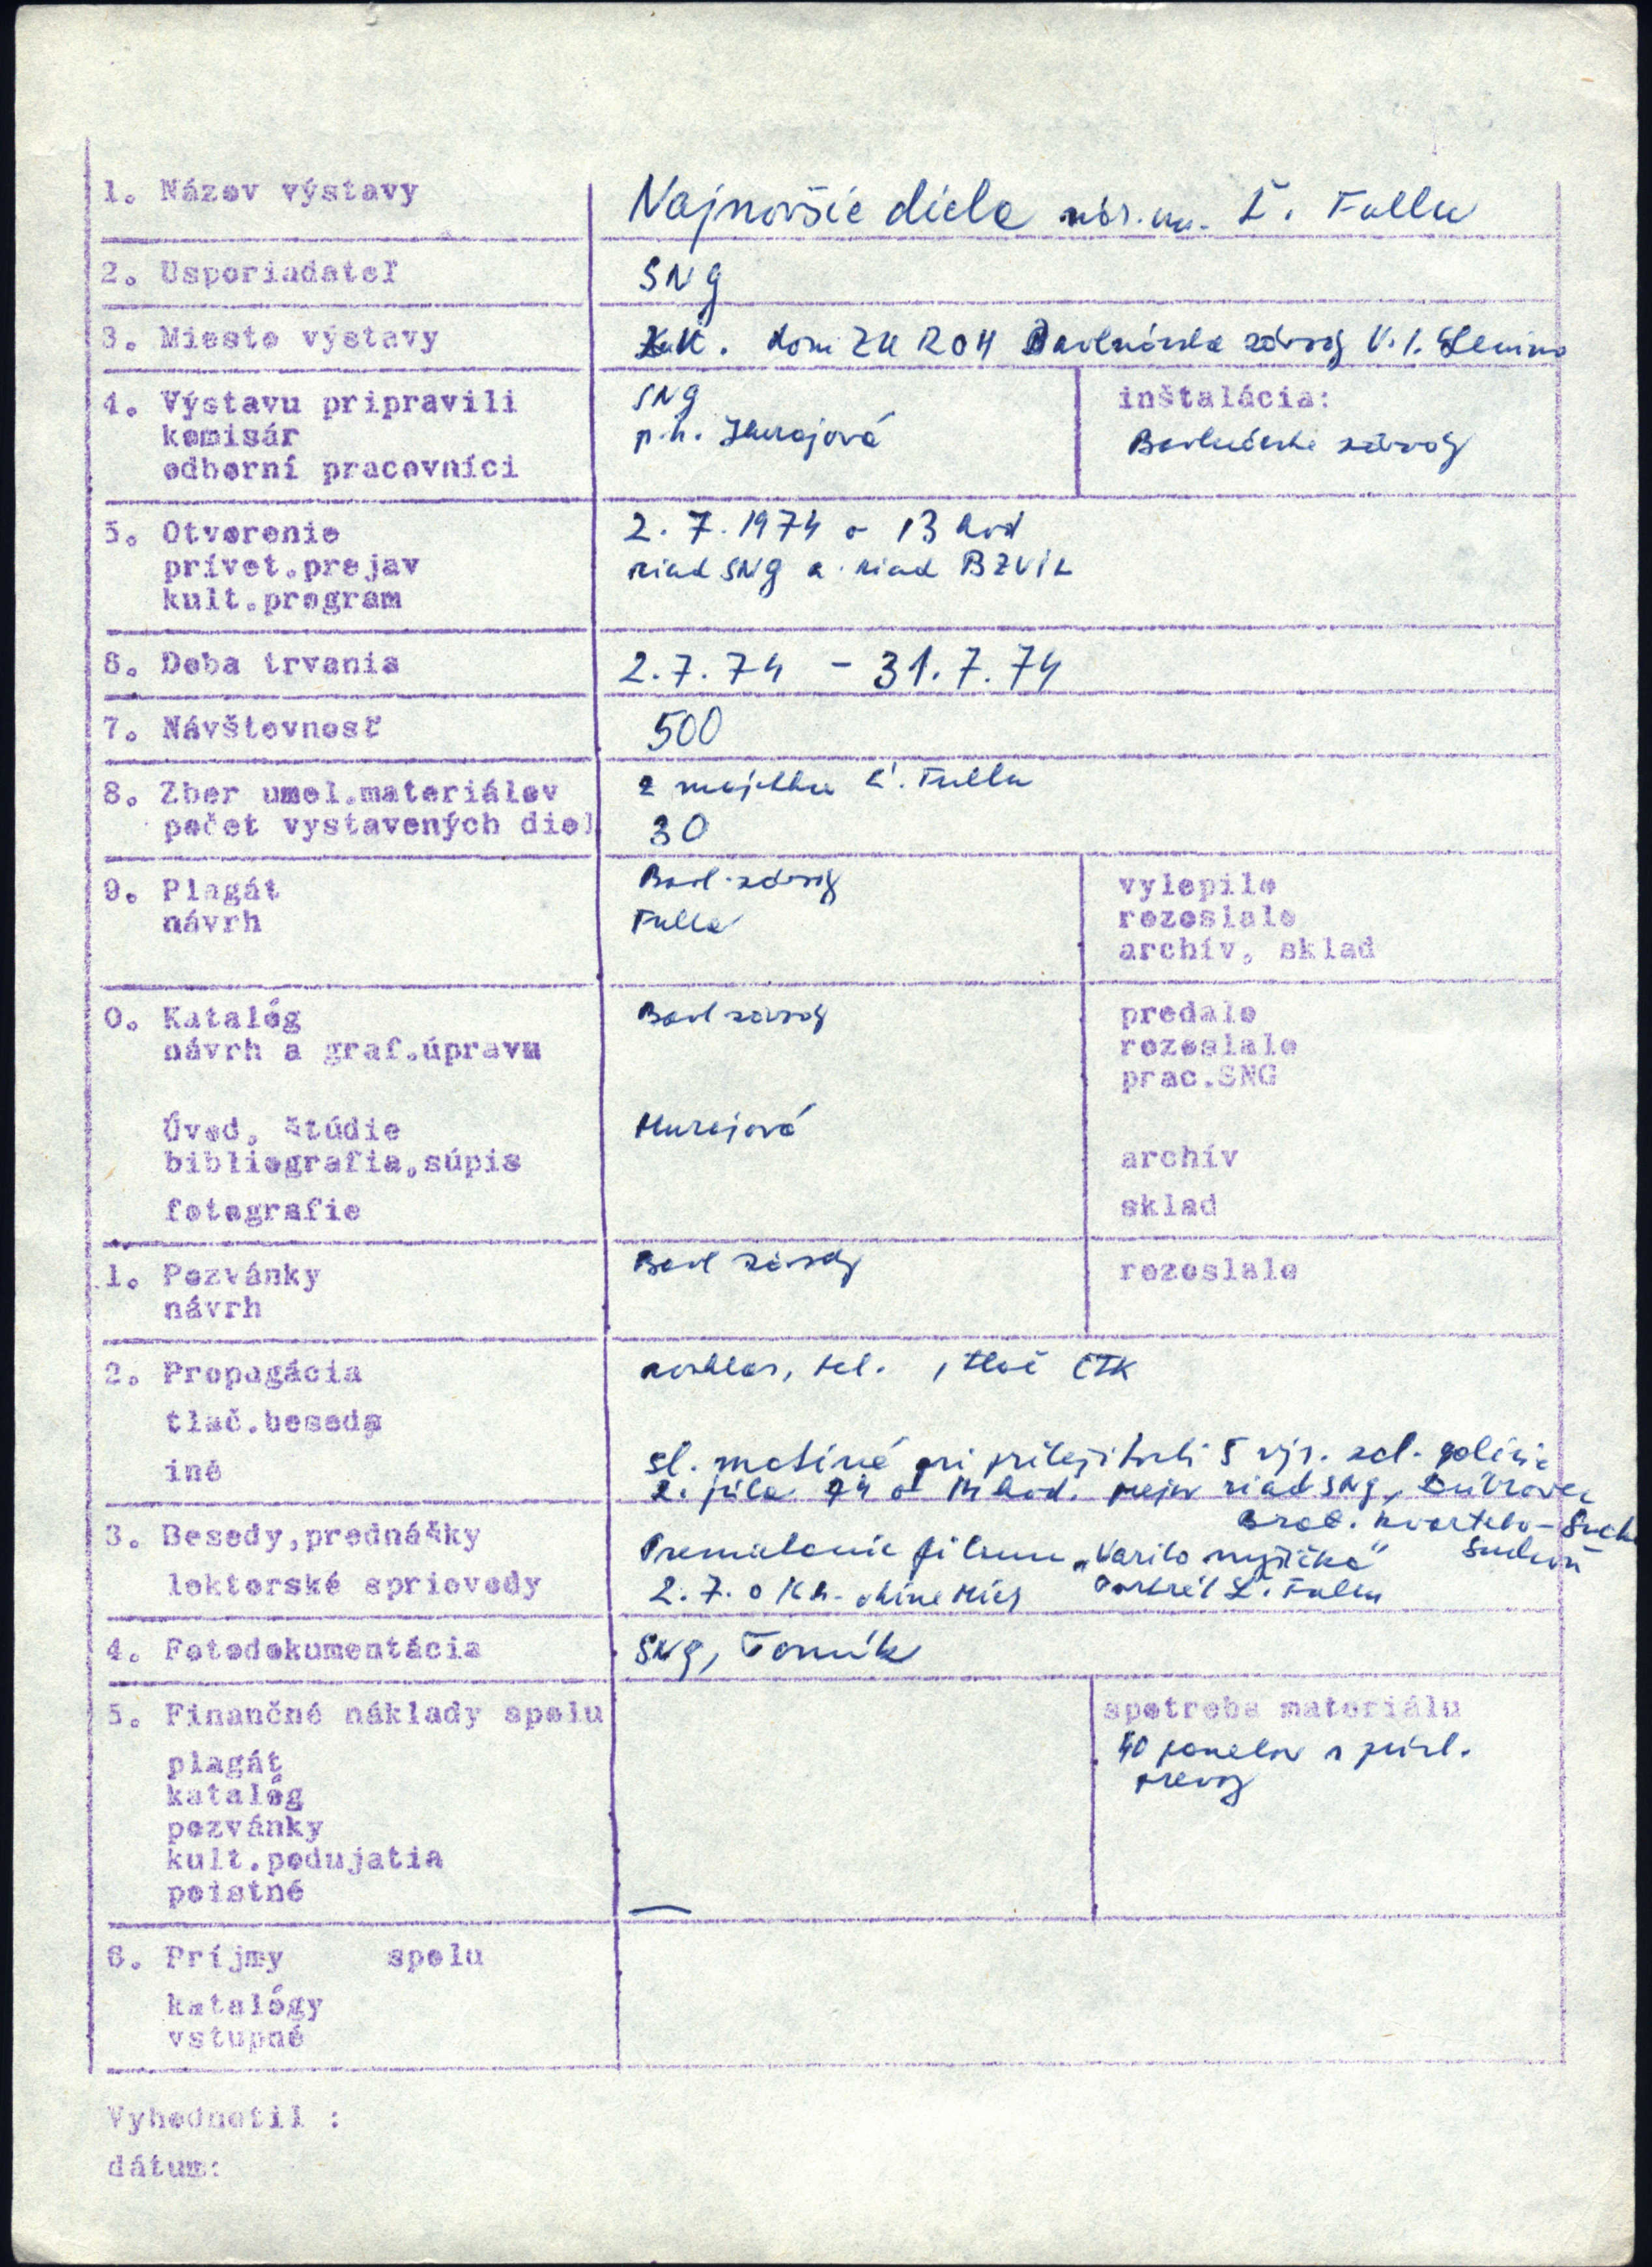 1. Názov výstavy
Najnovšie diela nár.um. Ľ. Fullu
2. Usporiadateľ
SNG
3. Miesto výstavy
K. dom ZK ROH Bavlnárske závody V.I. Lenina
4. Výstavu pripravili
komisár
odborní pracovníci
SNG
p.h. Murajová
inštalácia:
Bavlnárske závody
5. Otvorenie
prívet.prejav
kult.program
2. 7. 1974 o 13 hod
riad SNG a riad BZVIL
6. Doba trvania
2.7.74 - 31.7.74
7. Návštevnosť
500
8. Zber umel.materiálov
počet vystavených diel
z majetku Ľ. Fullu
30
9. Plagát
návrh
Bavl. závody
Fulla
vylepilo
rozosialo
archív, sklad
0. Katalóg
návrh a graf.úpravu
Bavl závody
predalo
rozoslalo
prac.SNG
Úvod, štúdie
bibliografia,súpis
fotografie
Murajová
archív
sklad
1. Pozvánky
návrh
Bavl závody
rozoslalo
2. Propagácia
tlač.beseda
iné
rozhlas, tel. , tlač ČTK
sl. matiné pri príležitosti 5 výr. zal. galérie
2. júla 74 o 14 hod. prejav riad SNG, Dúbravec
Brat. kvarteto -
3. Besedy,prednášky
lektorské sprievody
Premietanie filmu „Varila myšička"
2.7. o h. v kine Mier Portrét Ľ. Fullu
4. Fotodokumentácia
SNG,
5. Finančné náklady spolu
plagát
katalóg
pozvánky
kult.podujatia
poistné
—
spotreba materiálu
40 panelov s prísl.
prevoz
6. Príjmy spolu
katalógy
vstupné
Vyhodnotil :
dátum: